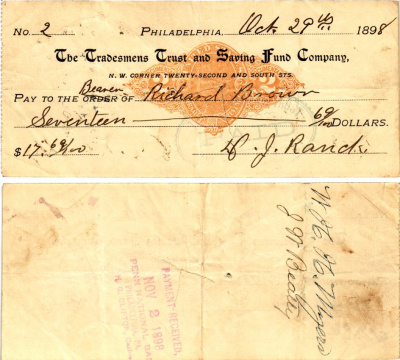 No. 2 Philadelphia, Oct. 29th 1898
The Tradesmens Trust and Saving Fund Company,
N. W. CORNER TWENTY-SECOND AND SOUTH STS.
Bearer
PAY TO THE ORDER OF Richard Brown
Seventeen 69/100 DOLLARS.
$17.69/100 J. Ranck
PAID
W. H. H. Myers
J W Beatty
PAYMENT RECEIVED,
NOV 2 1898